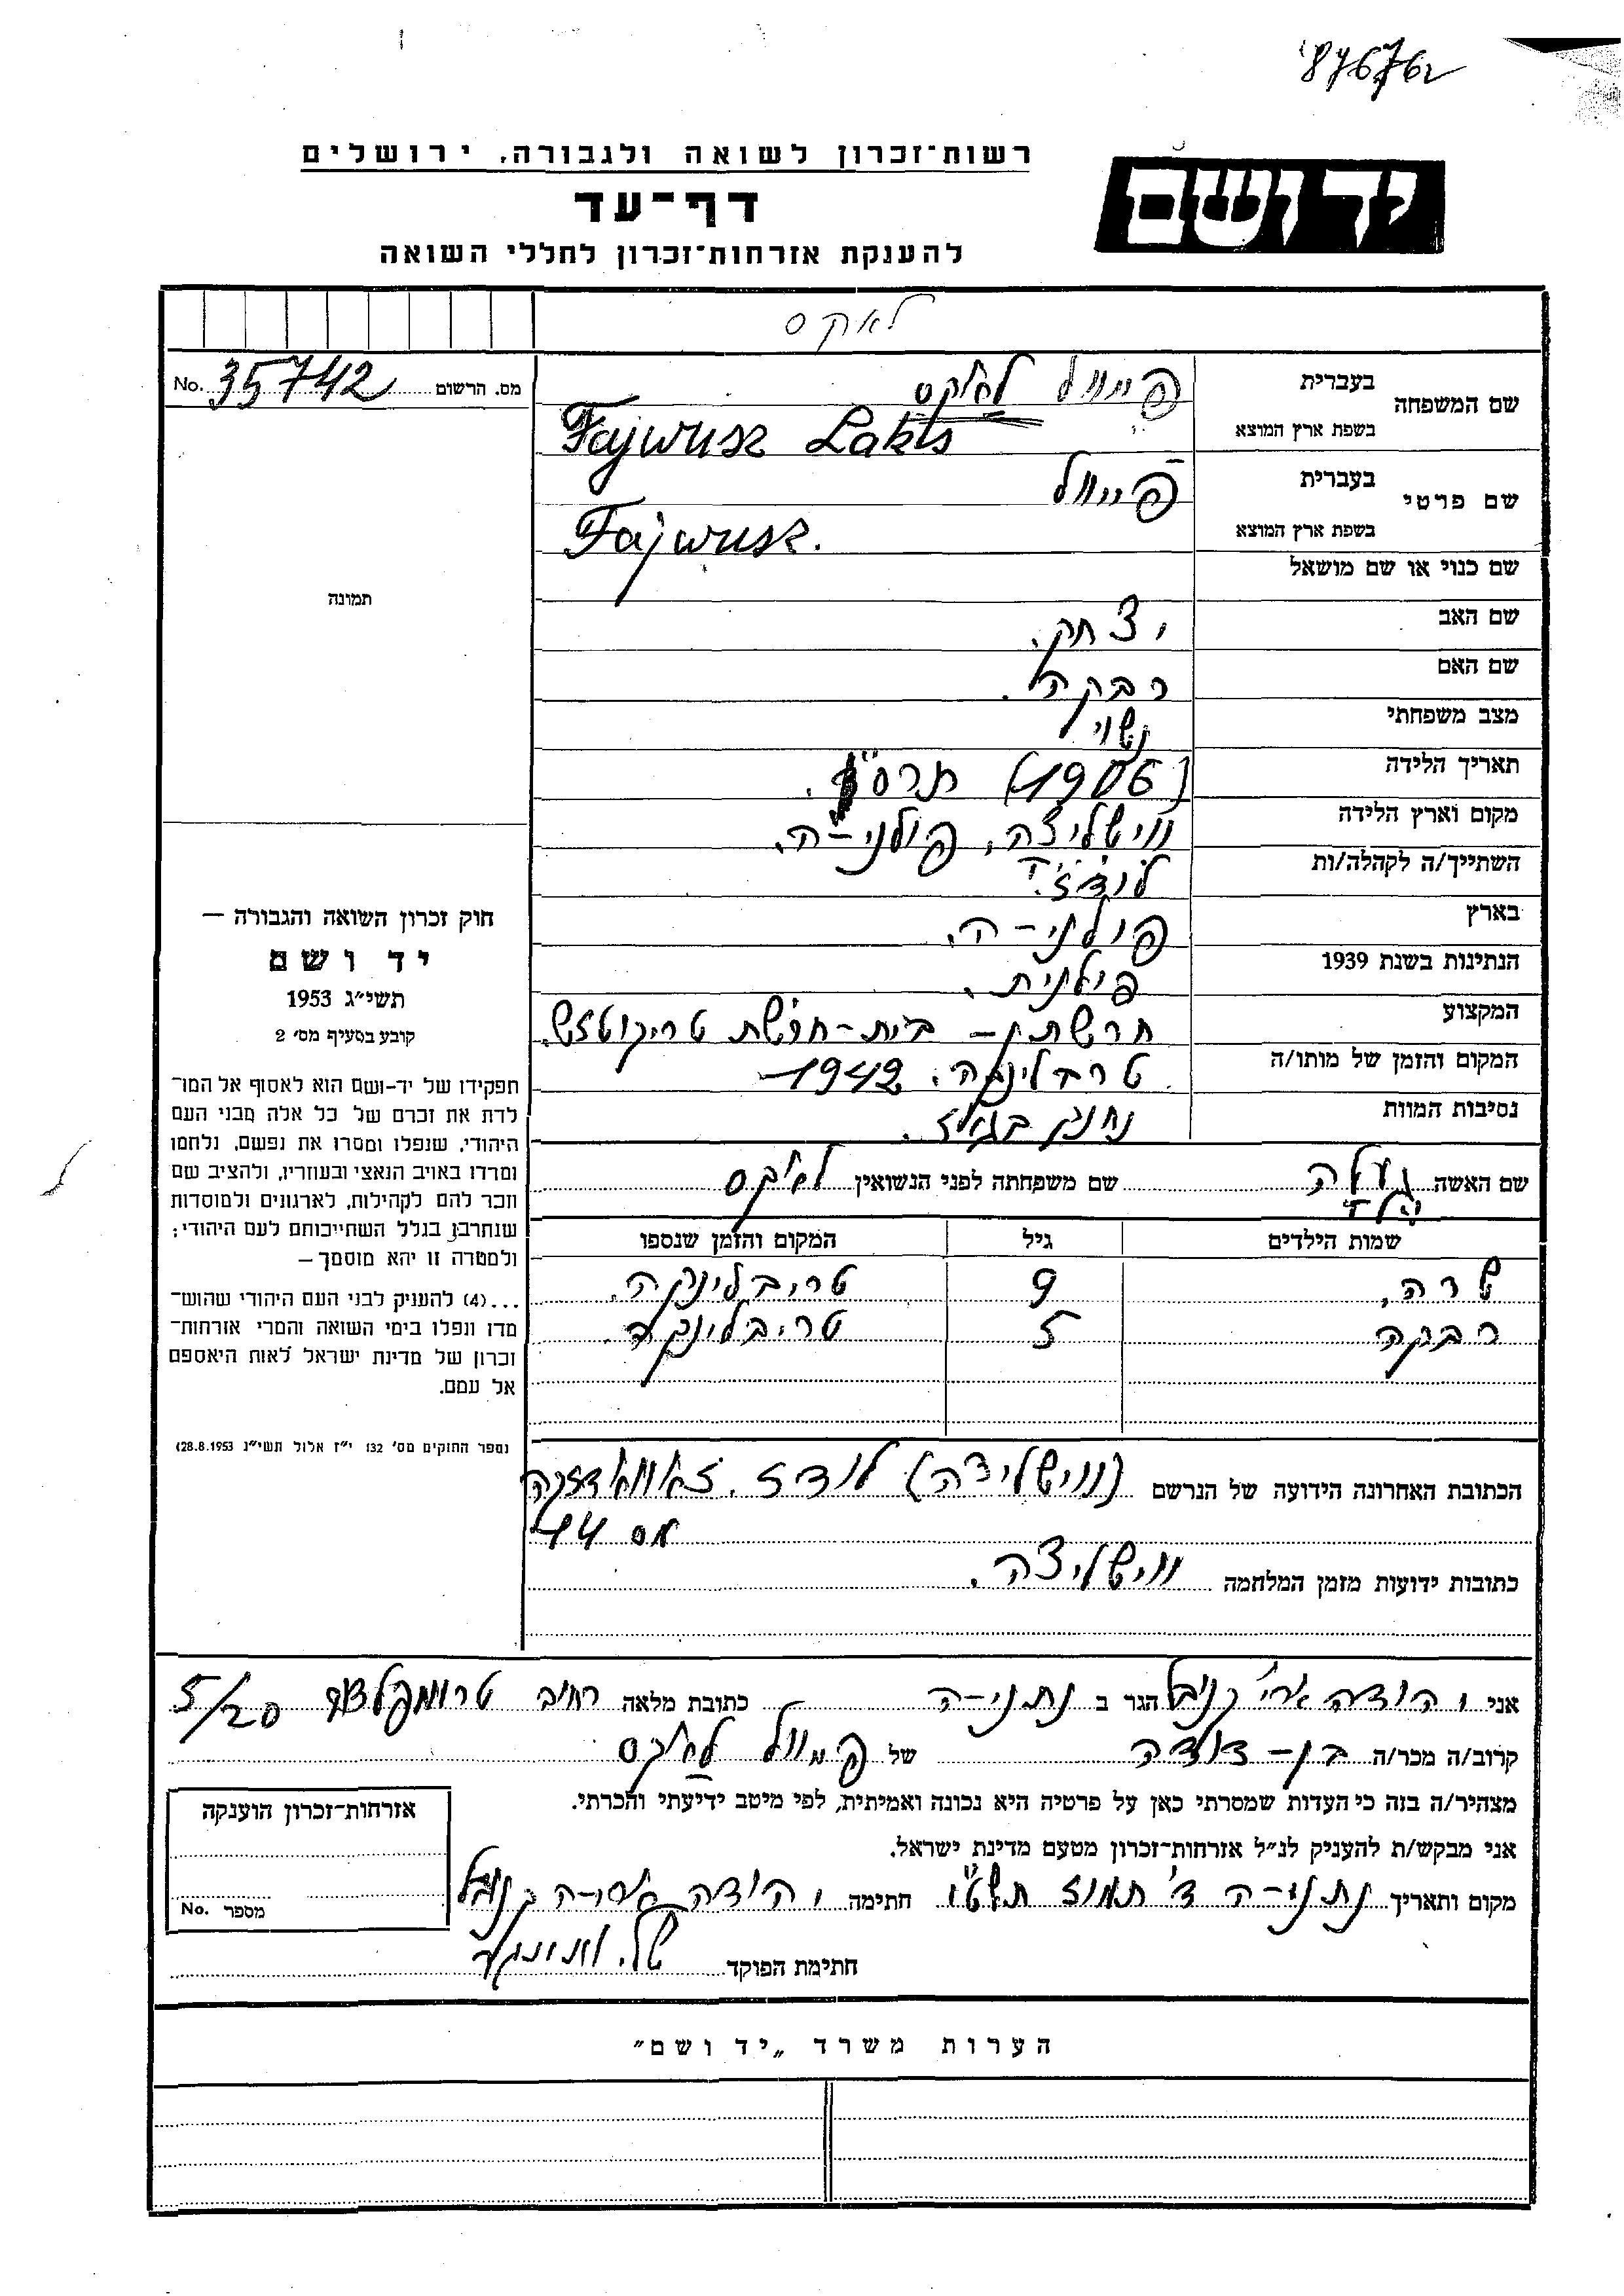 87676
רשות־זכרון לשואה ולגבורה, ירושלים
יד ושם
דף־עד
להענקת אזרחות־זכרון לחללי השואה
לאקס
מס. הרשום 35742 No.
שם המשפחה בעברית פייוול לאקס
בשפת ארץ המוצא Fajwusz Laks
שם פרטי בעברית פייוול
בשפת ארץ המוצא Fajwusz.
שם כנוי או שם מושאל
תמונה
שם האב יצחק.
שם האם רבקה.
מצב משפחתי נשוי
תאריך הלידה (1906)
מקום וארץ הלידה ווישליצה, פולני-ה.
השתייך/ה לקהלה/ות לודז'
בארץ פולני-ה.
הנתינות בשנת 1939 פולנית.
המקצוע חרשתן - בית-חרשת טריקוטזש.
המקום והזמן של מותו/ה טרבלינקה. 1942
נסיבות המוות נחנק בגאז.
חוק זכרון השואה והגבורה —
יד ושם
תשי״ג 1953
קובע בסעיף מס׳ 2
תפקידו של יד-ושם הוא לאסוף אל המו־
לדת את זכרם של כל אלה מבני העם
היהודי, שנפלו ומסרו את נפשם, נלחמו
ומרדו באויב הנאצי ובעוזריו, ולהציב שם
וזכר להם לקהילות, לארגונים ולמוסדות
שנחרבו בגלל השתייכותם לעם היהודי;
ולמטרה זו יהא מוסמך —
...(4) להעניק לבני העם היהודי שהוש־
מדו ונפלו בימי השואה והמרי אזרחות־
זכרון של מדינת ישראל לאות היאספם
אל עמם.
(ספר החוקים מס׳ 132 י״ז אלול תשי״ג 28.8.1953)
שם האשה שם משפחתה לפני הנשואין לאקס
שמות הילדים גיל המקום והזמן שנספו
שרה, 9 טריבלינקה.
רבקה 5 טריבלינקה.
הכתובת האחרונה הידועה של הנרשם (ווישליצה) לודז. זאוואדזקה
מס 44
כתובות ידועות מזמן המלחמה ווישליצה.
אני יהודה ארי' הגר ב נתני-ה כתובת מלאה רחוב טרומפלדור 5/20
קרוב/ה מכר/ה בן-דודה של פייוול לאקס
מצהיר/ה בזה כי העדות שמסרתי כאן על פרטיה היא נכונה ואמיתית, לפי מיטב ידיעתי והכרתי.
אני מבקש/ת להעניק לנ״ל אזרחות־זכרון מטעם מדינת ישראל.
מקום ותאריך נתני-ה ד' תמוז תשט"ו חתימה יהודה ארי-ה
חתימת הפוקד
אזרחות־זכרון הוענקה
מספר No.
הערות משרד „יד ושם״